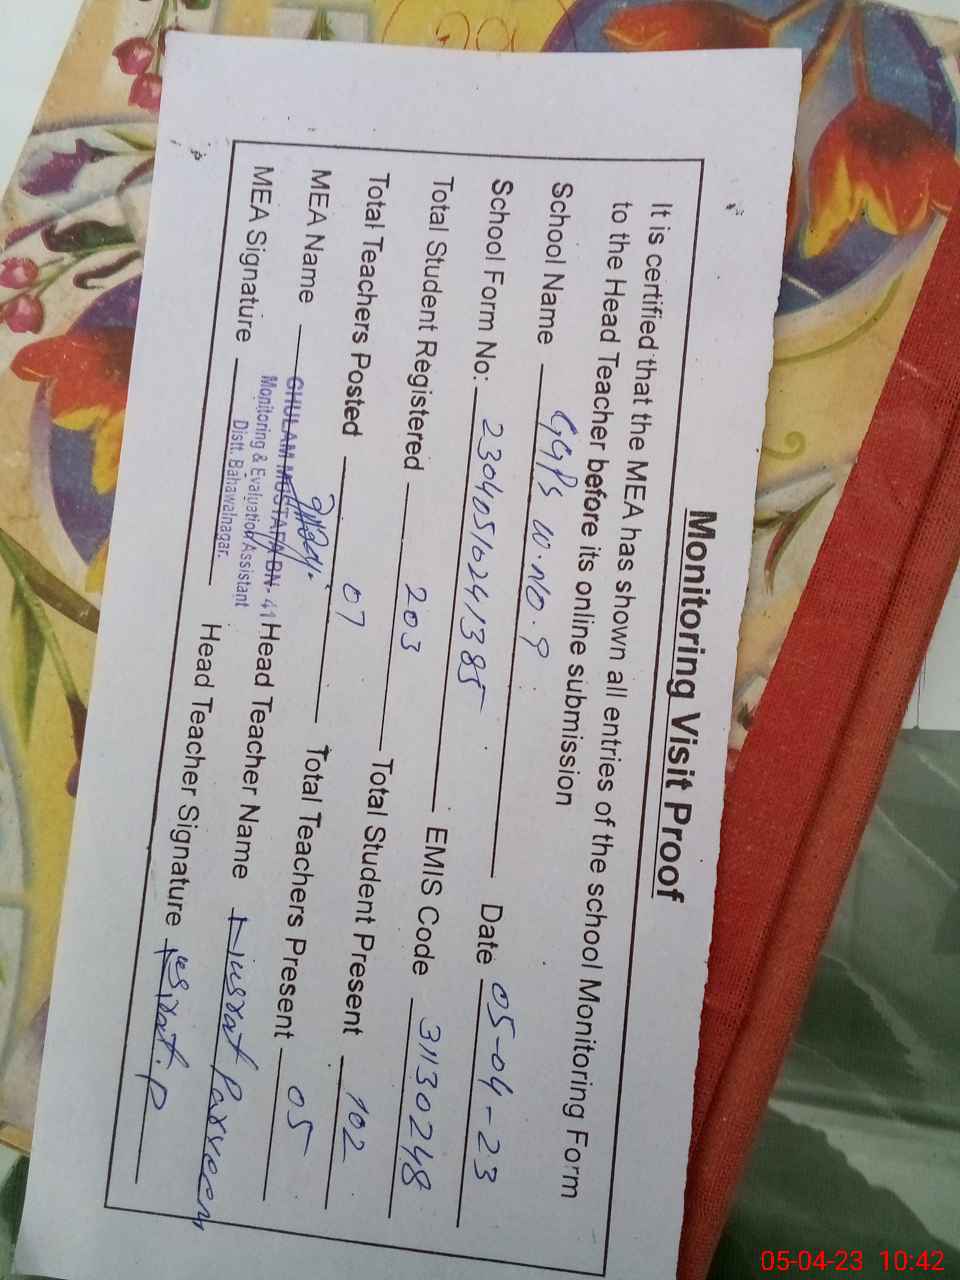 Monitoring Visit Proof
It is certified that the MEA has shown all entries of the school Monitoring Form
to the Head Teacher before its online submission
School Name GGPS W.NO.9
School Form No: 23040510241385 Date 05-04-23
Total Student Registered 203 EMIS Code 31130248
Total Teachers Posted 07 Total Student Present 102
MEA Name GHULAM MUSTAFA BN-41 Total Teachers Present 05
Monitoring & Evaluation Assistant
Distt. Bahawalnagar.
MEA Signature Head Teacher Name Nusrat Parveen
Head Teacher Signature Nusrat.P
05-04-23 10:42